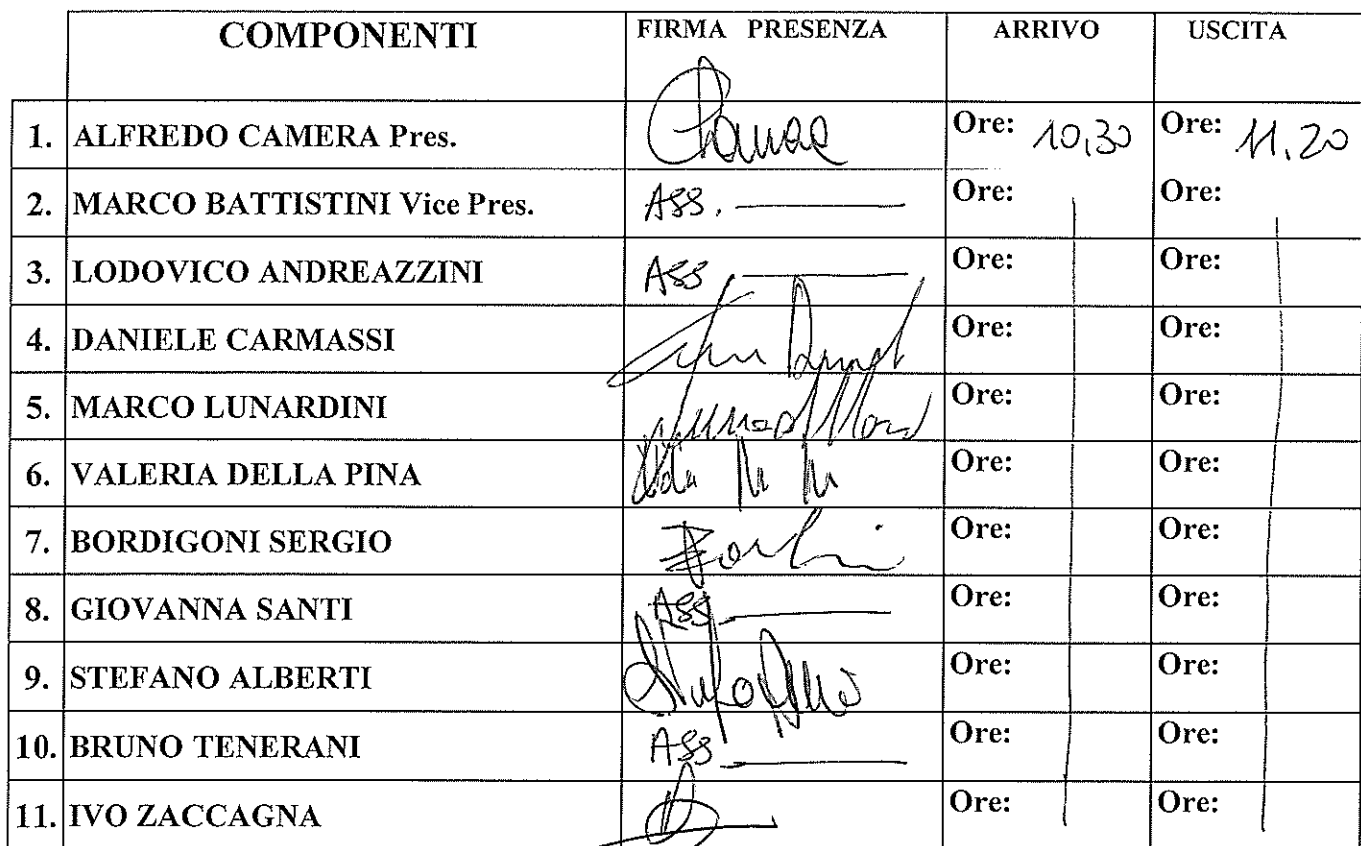 COMPONENTI FIRMA PRESENZA ARRIVO USCITA
1. ALFREDO CAMERA Pres. Ore: 10,30 Ore: 11,20
2. MARCO BATTISTINI Vice Pres. ASS. Ore: Ore:
3. LODOVICO ANDREAZZINI ASS Ore: Ore:
4. DANIELE CARMASSI Ore: Ore:
5. MARCO LUNARDINI Ore: Ore:
6. VALERIA DELLA PINA Ore: Ore:
7. BORDIGONI SERGIO Ore: Ore:
8. GIOVANNA SANTI ASS Ore: Ore:
9. STEFANO ALBERTI Ore: Ore:
10. BRUNO TENERANI ASS Ore: Ore:
11. IVO ZACCAGNA Ore: Ore: